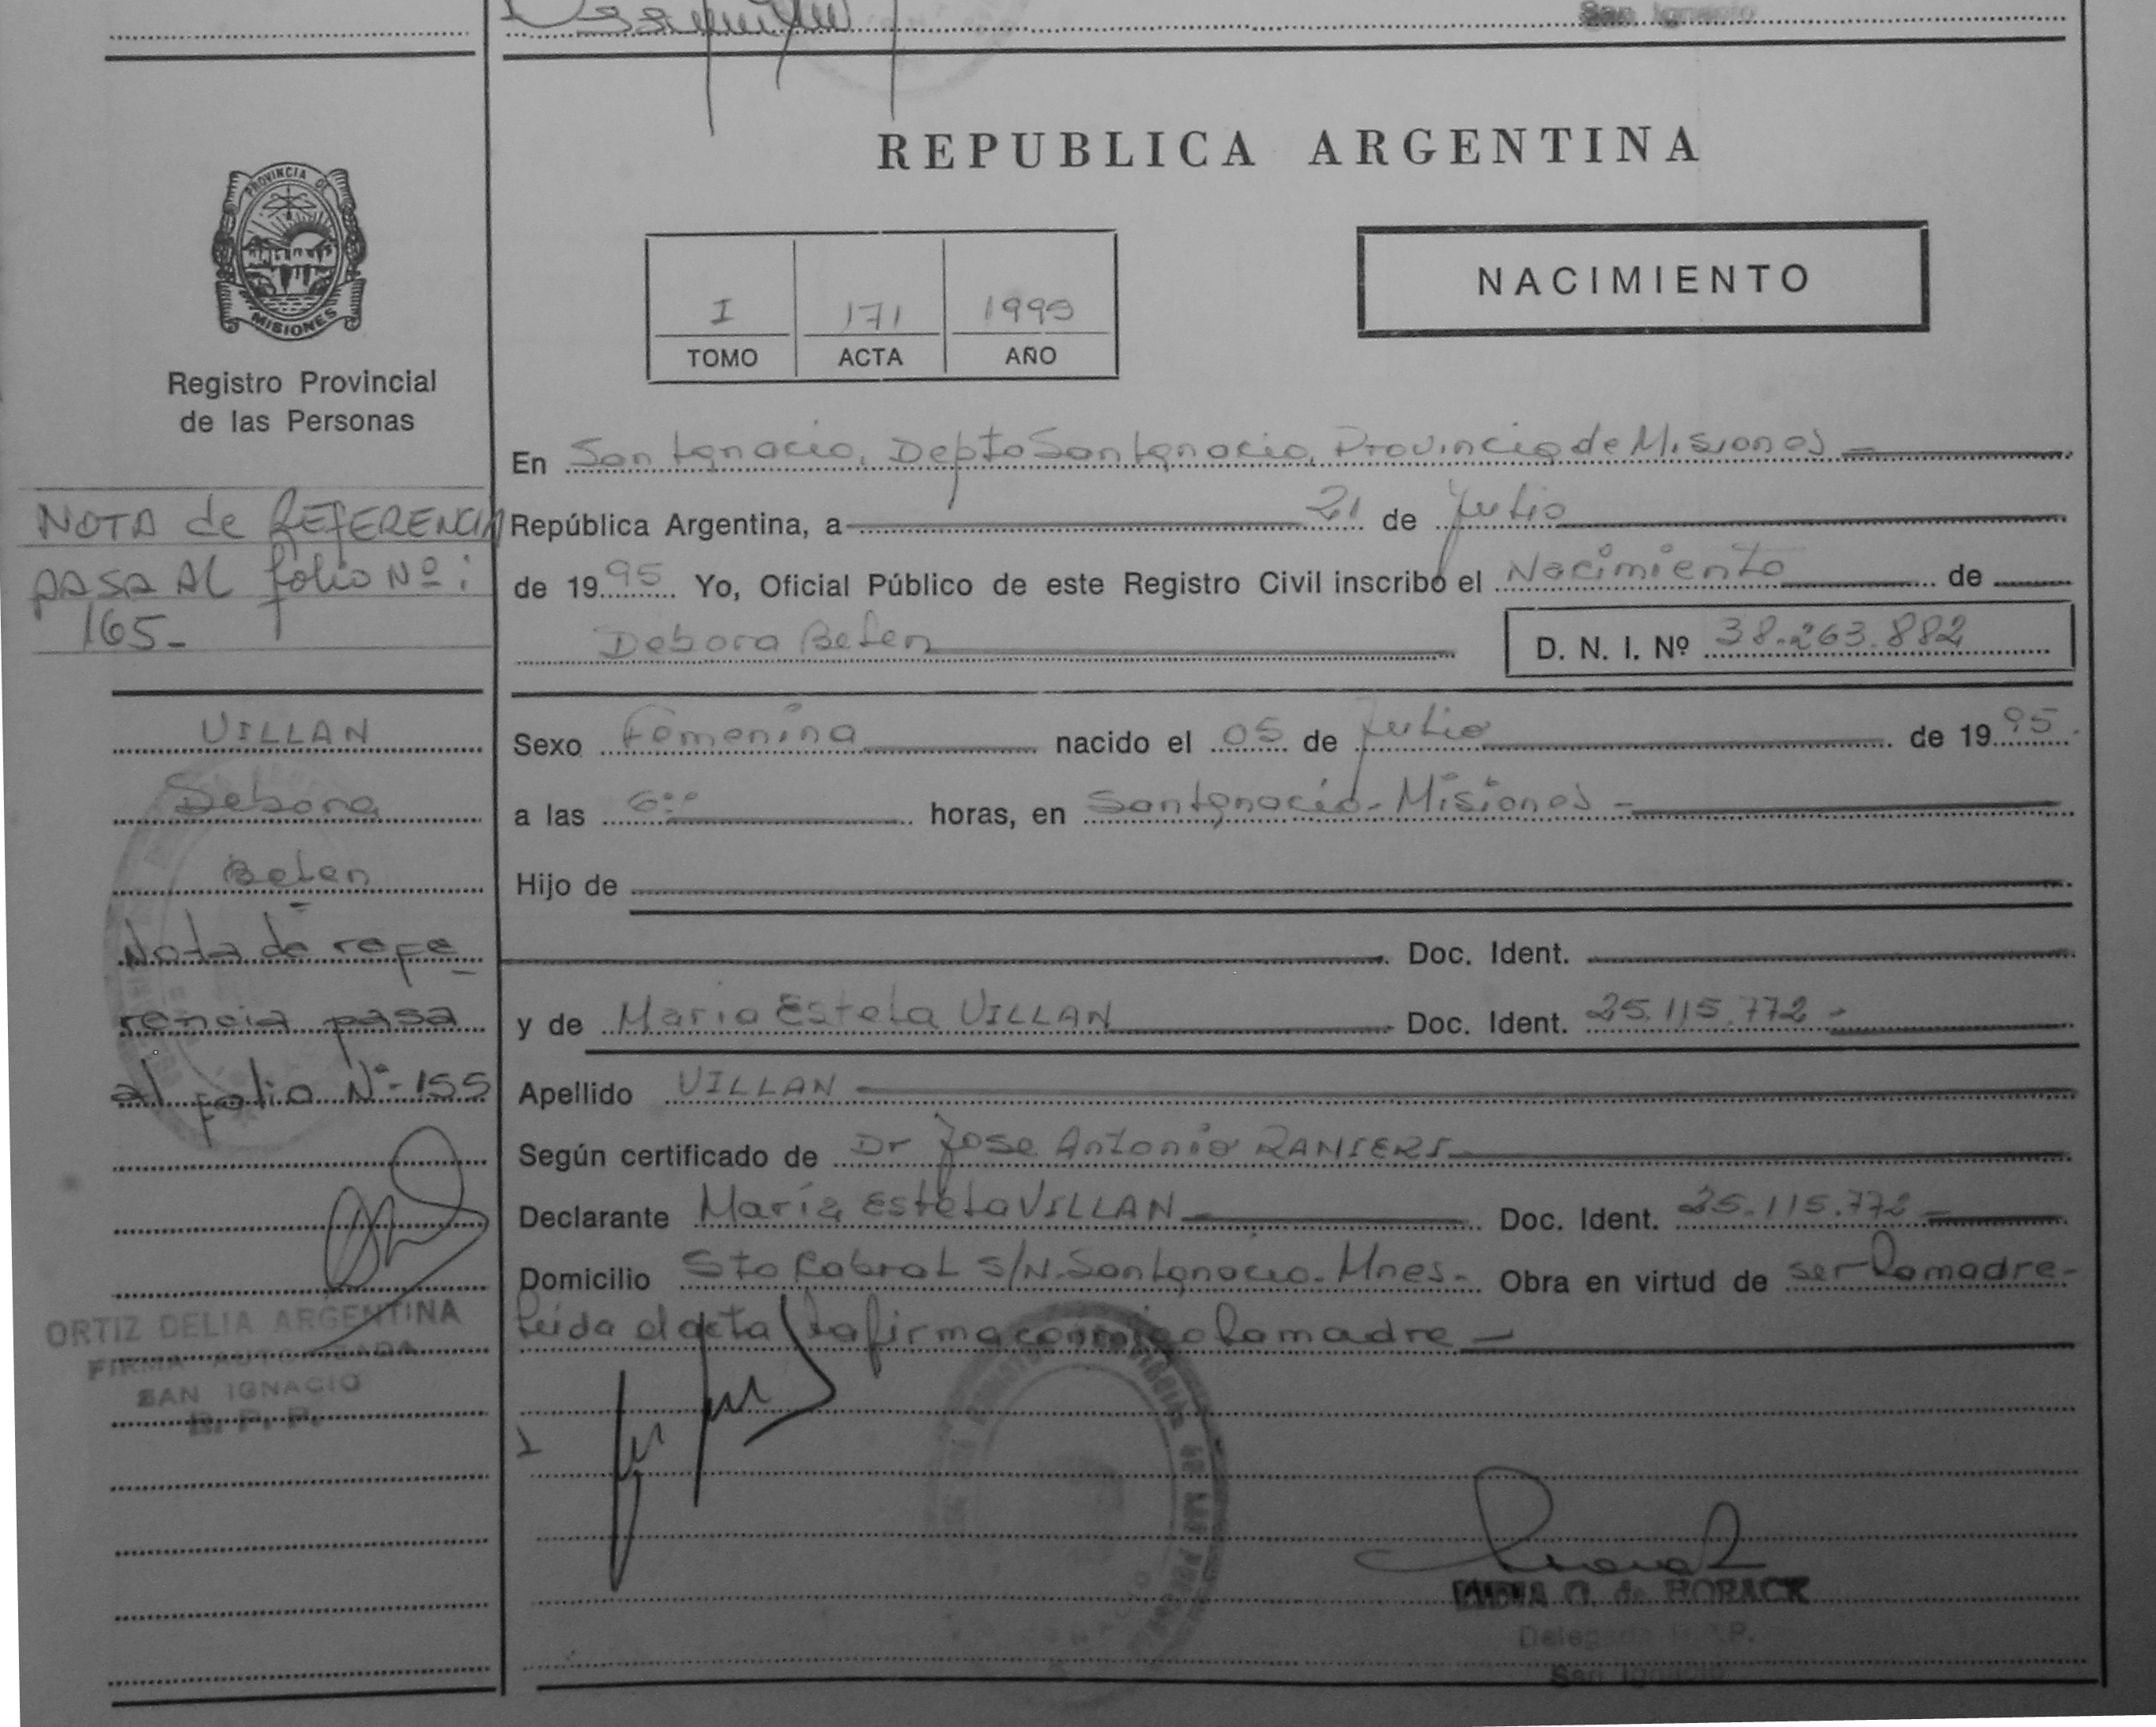 San Ignacio
PROVINCIA DE
MISIONES
Registro Provincial
de las Personas
NOTA de REFERENCIA
PASA AL folio Nº:
165-
VILLAN
Debora
Belen
Nota de refe
rencia pasa
al folio Nº 155
ORTIZ DELIA ARGENTINA
FIRMA AUTORIZADA
SAN IGNACIO
R. P. P.
REPUBLICA ARGENTINA
I 171 1995
TOMO ACTA AÑO
NACIMIENTO
En San Ignacio, Depto San Ignacio, Provincia de Misiones
República Argentina, a 21 de Julio
de 1995 Yo, Oficial Público de este Registro Civil inscribo el Nacimiento de
Debora Belen D. N. I. Nº 38.263.882
Sexo Femenina nacido el 05 de Julio de 1995
a las 6:00 horas, en San Ignacio - Misiones -
Hijo de
Doc. Ident.
y de Maria Estela VILLAN Doc. Ident. 25.115.772 -
Apellido VILLAN
Según certificado de Dr Jose Antonio RANIERI
Declarante María Estela VILLAN Doc. Ident. 25.115.772 -
Domicilio Sto Cabral S/N. San Ignacio. Mnes. Obra en virtud de ser la madre -
Leída el acta la firma conmigo la madre -
de HORACK
Delegada R.P.P.
San Ignacio